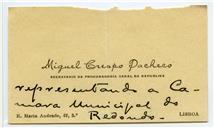 Miguel Crespo Pacheco
SECRETARIO DA PROCURADORIA GERAL DA REPUBLICA
representando a Ca-
mara Municipal do
Redondo.
R. Maria Andrade, 62, 3.º LISBOA